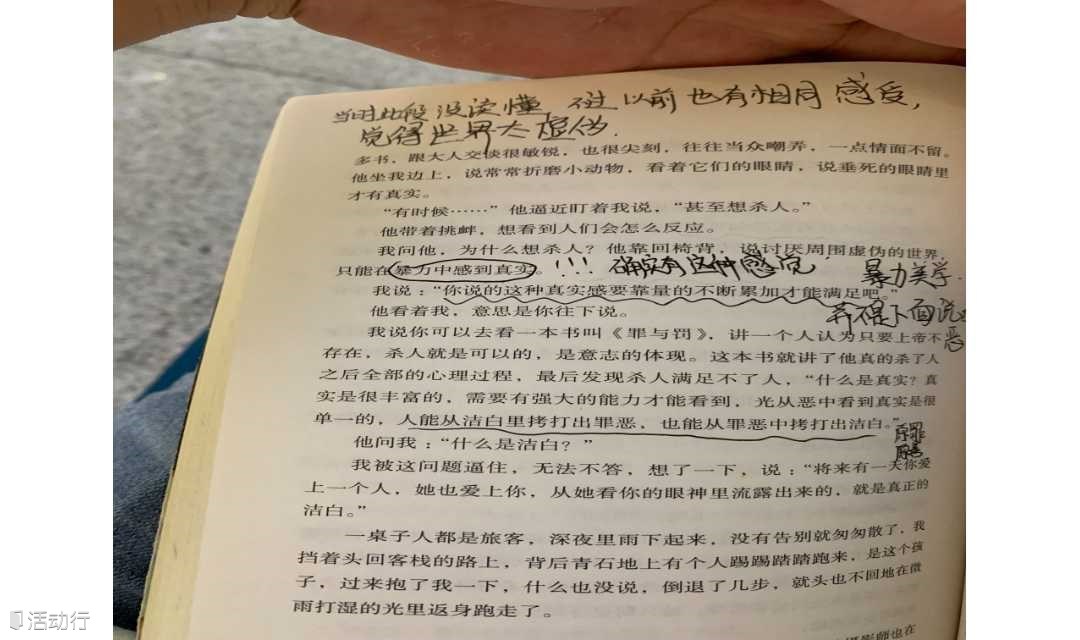 当时此段没读懂，不过以前也有相同感受，
觉得世界太虚伪.
多书，跟大人交谈很敏锐，也很尖刻，往往当众嘲弄，一点情面不留。
他坐我边上，说常常折磨小动物，看着它们的眼睛，说垂死的眼睛里
才有真实。
“有时候……”他逼近盯着我说，“甚至想杀人。”
他带着挑衅，想看到人们会怎么反应。
我问他，为什么想杀人？他靠回椅背，说讨厌周围虚伪的世界，
只能在暴力中感到真实。!!! 确实有这种感觉 暴力美学.
我说：“你说的这种真实感要靠量的不断累加才能满足吧。”
他看着我，意思是你往下说。
弄得下面说
恶
我说你可以去看一本书叫《罪与罚》，讲一个人认为只要上帝不
存在，杀人就是可以的，是意志的体现。这本书就讲了他真的杀了人
之后全部的心理过程，最后发现杀人满足不了人，“什么是真实？真
实是很丰富的，需要有强大的能力才能看到，光从恶中看到真实是很
单一的，人能从洁白里拷打出罪恶，也能从罪恶中拷打出洁白。”
原罪
他问我：“什么是洁白？”
我被这问题逼住，无法不答，想了一下，说：“将来有一天你爱
上一个人，她也爱上你，从她看你的眼神里流露出来的，就是真正的
洁白。”
一桌子人都是旅客，深夜里雨下起来，没有告别就匆匆散了，我
挡着头回客栈的路上，背后青石地上有个人踢踢踏踏跑来，是这个孩
子，过来抱了我一下，什么也没说，倒退了几步，就头也不回地在微
雨打湿的光里返身跑走了。
摄影师也在
活动行